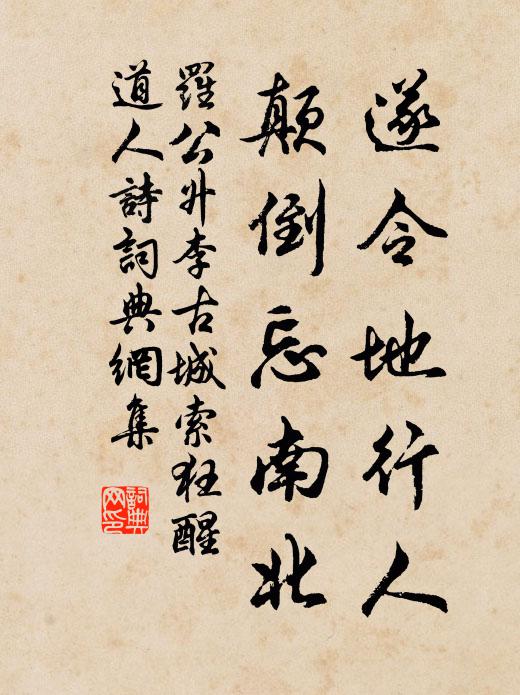 遂令地行人
顛倒忘南北
羅公升李古城索狂醒
道人詩詞典網集
詞典网印